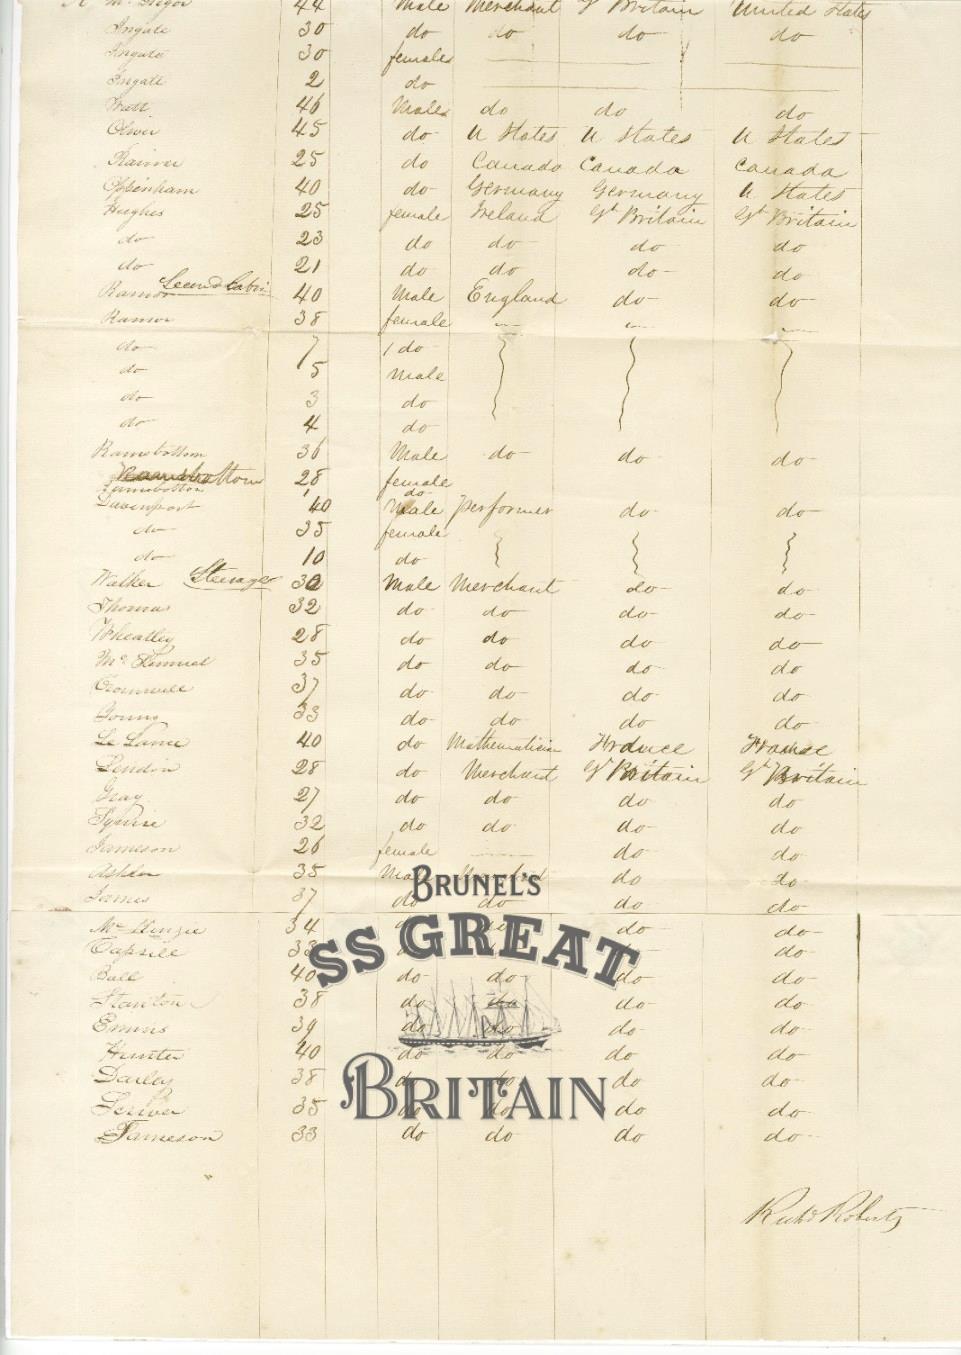 44 Male Merchant Gt Britain United States
Ingate 30 do do do do
Ingate 30 female
Ingate 2 do
46 Male do do do
Oliver 45 do U States U States U States
25 do Canada Canada Canada
Oppenham 40 do Germany Germany U States
Hughes 25 female Ireland Gt Britain Gt Britain
do 23 do do do do
do 21 do do do do
Second Cabin
40 Male England do do
38 female
do 7 do
do 5 Male
do 3 do
do 4 do
Ramsbottom 36 Male do do do
Ramsbottom 28 female
Ramsbottom do
Davenport 40 Male performer do do
do 35 female
do 10 do
Steerage
Walker 30 Male Merchant do do
Thomas 32 do do do do
Wheatley 28 do do do do
35 do do do do
Cromwell 37 do do do do
Young 33 do do do do
40 do Mathematician France France
28 do Merchant Gt Britain Gt Britain
Gray 27 do do do do
Squire 32 do do do do
Jameson 26 female do do
35 Male do do
James 37 do do do do
McKenzie 34 do do
33 do do
Ball 40 do do do do
Stanton 38 do do do do
Emms 39 do do do do
Hunter 40 do do do do
Darley 38 do do do do
Scriver 35 do do do do
Jameson 33 do do do do
Richd Roberts
BRUNEL'S
SS GREAT
BRITAIN